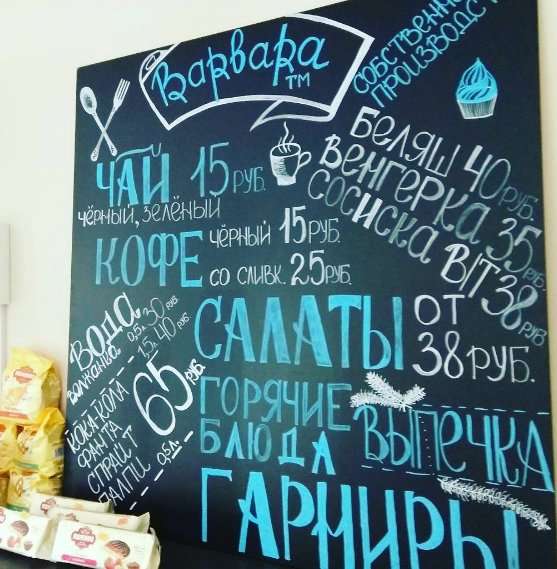 Варвара
ТМ
СОБСТВЕННО
ПРОИЗВОДСТ
ЧАЙ 15 РУБ.
ЧЁРНЫЙ, ЗЕЛЁНЫЙ
БЕЛЯШ 40 РУБ.
ВЕНГЕРКА 35 РУБ.
СОСИСКА В/Т 38 РУБ
КОФЕ ЧЁРНЫЙ 15 РУБ.
СО СЛИВК. 25 РУБ.
ВОДА 0,5л-30 РУБ
ВОЛЖАНКА 1,5л-40 РУБ.
КОКА-КОЛА
ФАНТА
СПРАЙТ
ПАЛПИ
65 РУБ.
0,5л.
САЛАТЫ ОТ
38 РУБ.
ГОРЯЧИЕ
БЛЮДА
ВЫПЕЧКА
ГАРНИРЫ